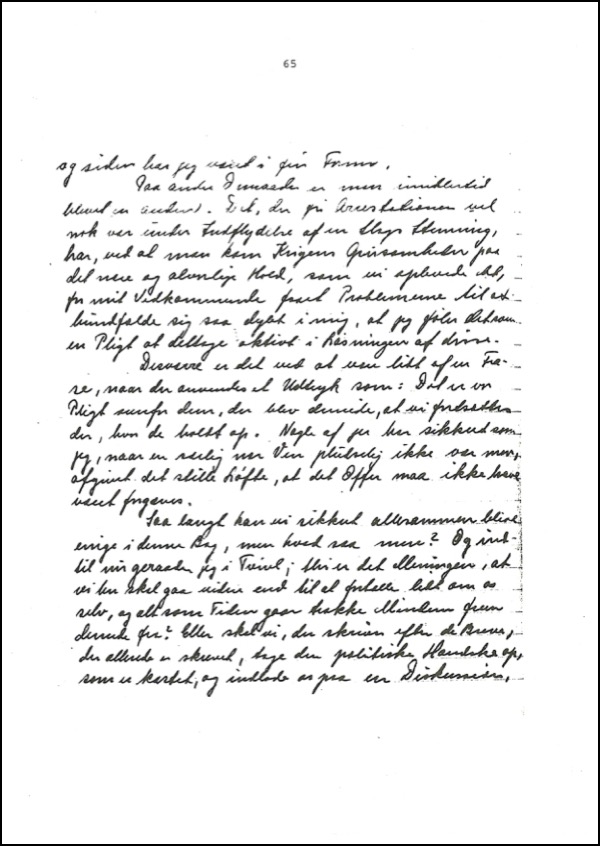 65
og siden har jeg været i fin Form.
Paa andre Omraader er man imidlertid
blevet en anden. Det, der før Arrestationen vel
nok var under Indflydelse af en Slags Stemning,
har, ved at man kom Krigens Grusomheder paa
det nære og alvorlige Hold, som vi oplevede det,
for mit Vedkommende faaet Problemerne til at
bundfælde sig saa dybt i mig, at jeg føler det som
en Pligt at deltage aktivt i Løsningen af disse.
Desværre er det ved at være lidt af en Fra-
se, naar der anvendes et Udtryk som: Det er vor
Pligt overfor dem, der blev dernede, at vi fortsætter
der, hvor de holdt op. Nogle af jer har sikkert som
jeg, naar en særlig nær Ven pludselig ikke var mere,
afgivet det stille Løfte, at det Offer maa ikke have
været forgæves.
Saa langt kan vi sikkert allesammen blive
enige i denne Bog, men hvad saa mere? Og ind-
til nu geraader jeg i Tvivl; thi er det Meningen, at
vi her skal gaa videre end til at fortælle lidt om os
selv, og alt som Tiden gaar trække Minderne frem
dernede fra? Eller skal vi, der skriver efter de Breve,
der allerede er skrevet, tage den politiske Handske op,
som er kastet, og indlade os paa en Diskussion,